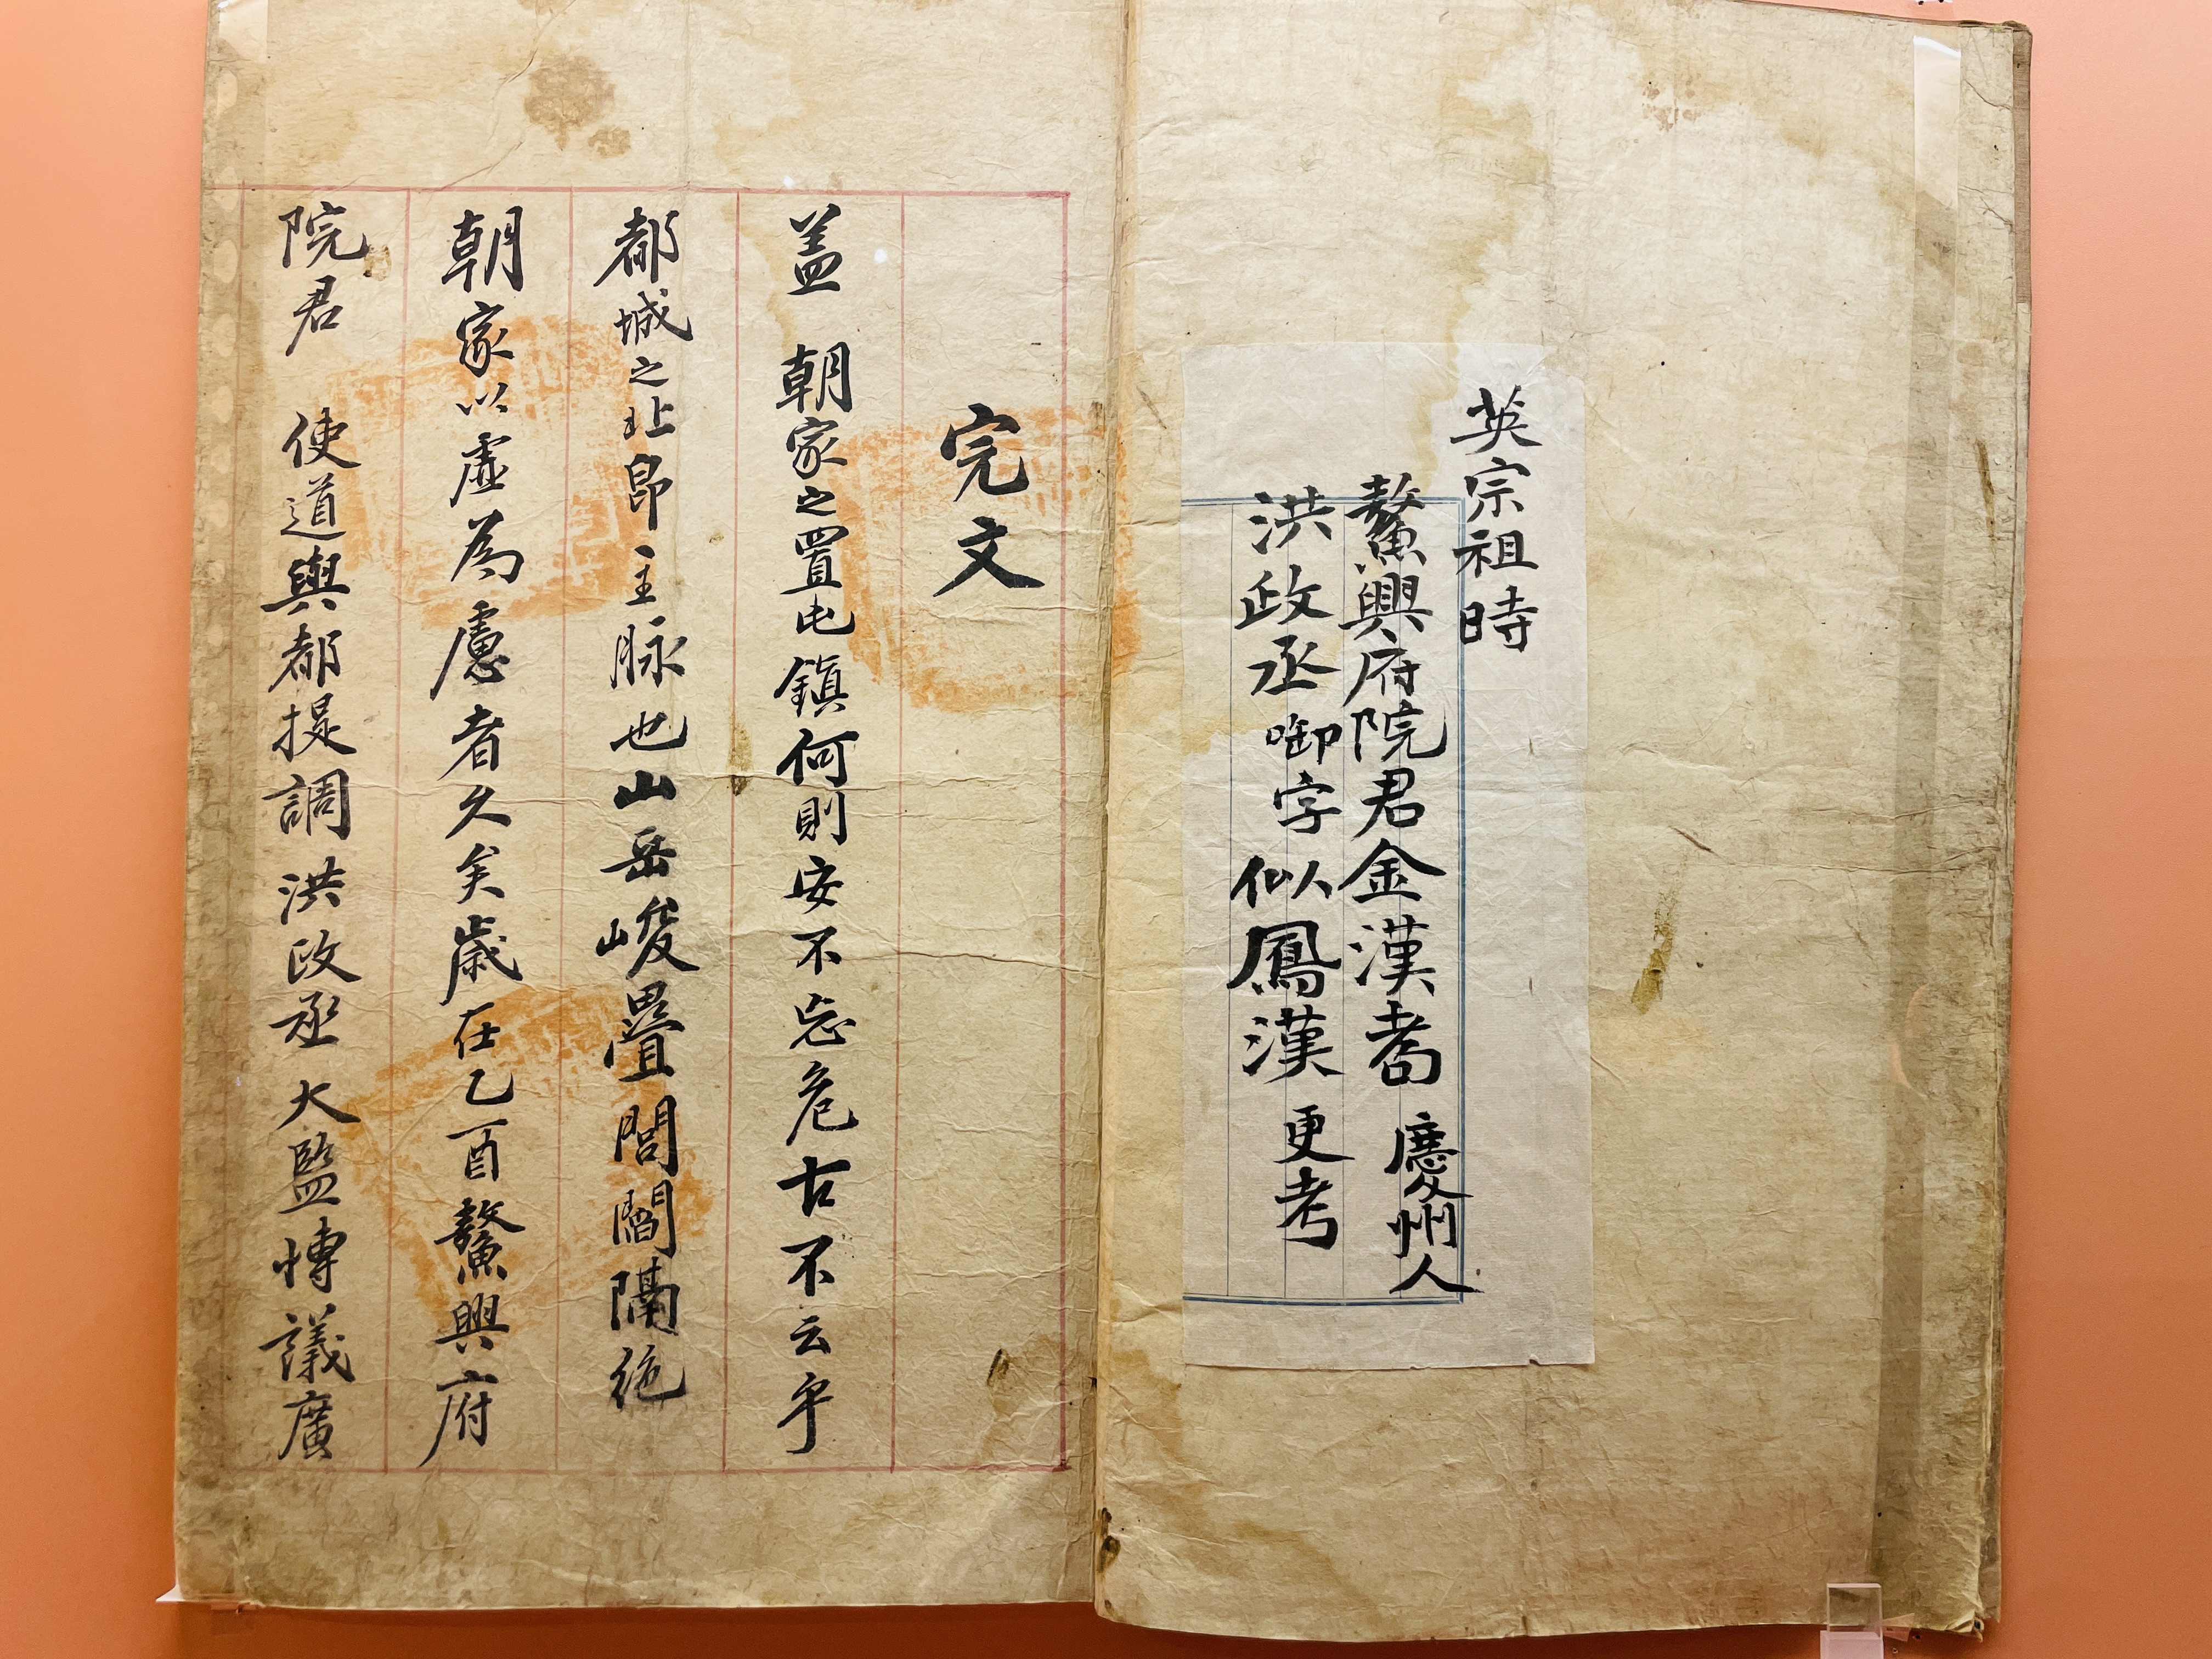 英宗祖時
鰲興府院君金漢耉 慶州人
洪政丞 啣字 似鳳漢 更考
完文
盖 朝家之置屯鎭何則安不忘危古不云乎
都城之北卽主脉也山岳峻疊閭閻隔絶
朝家以虛爲慮者久矣歲在乙酉鰲興府
院君 使道與都提調洪政丞大監愽議廣